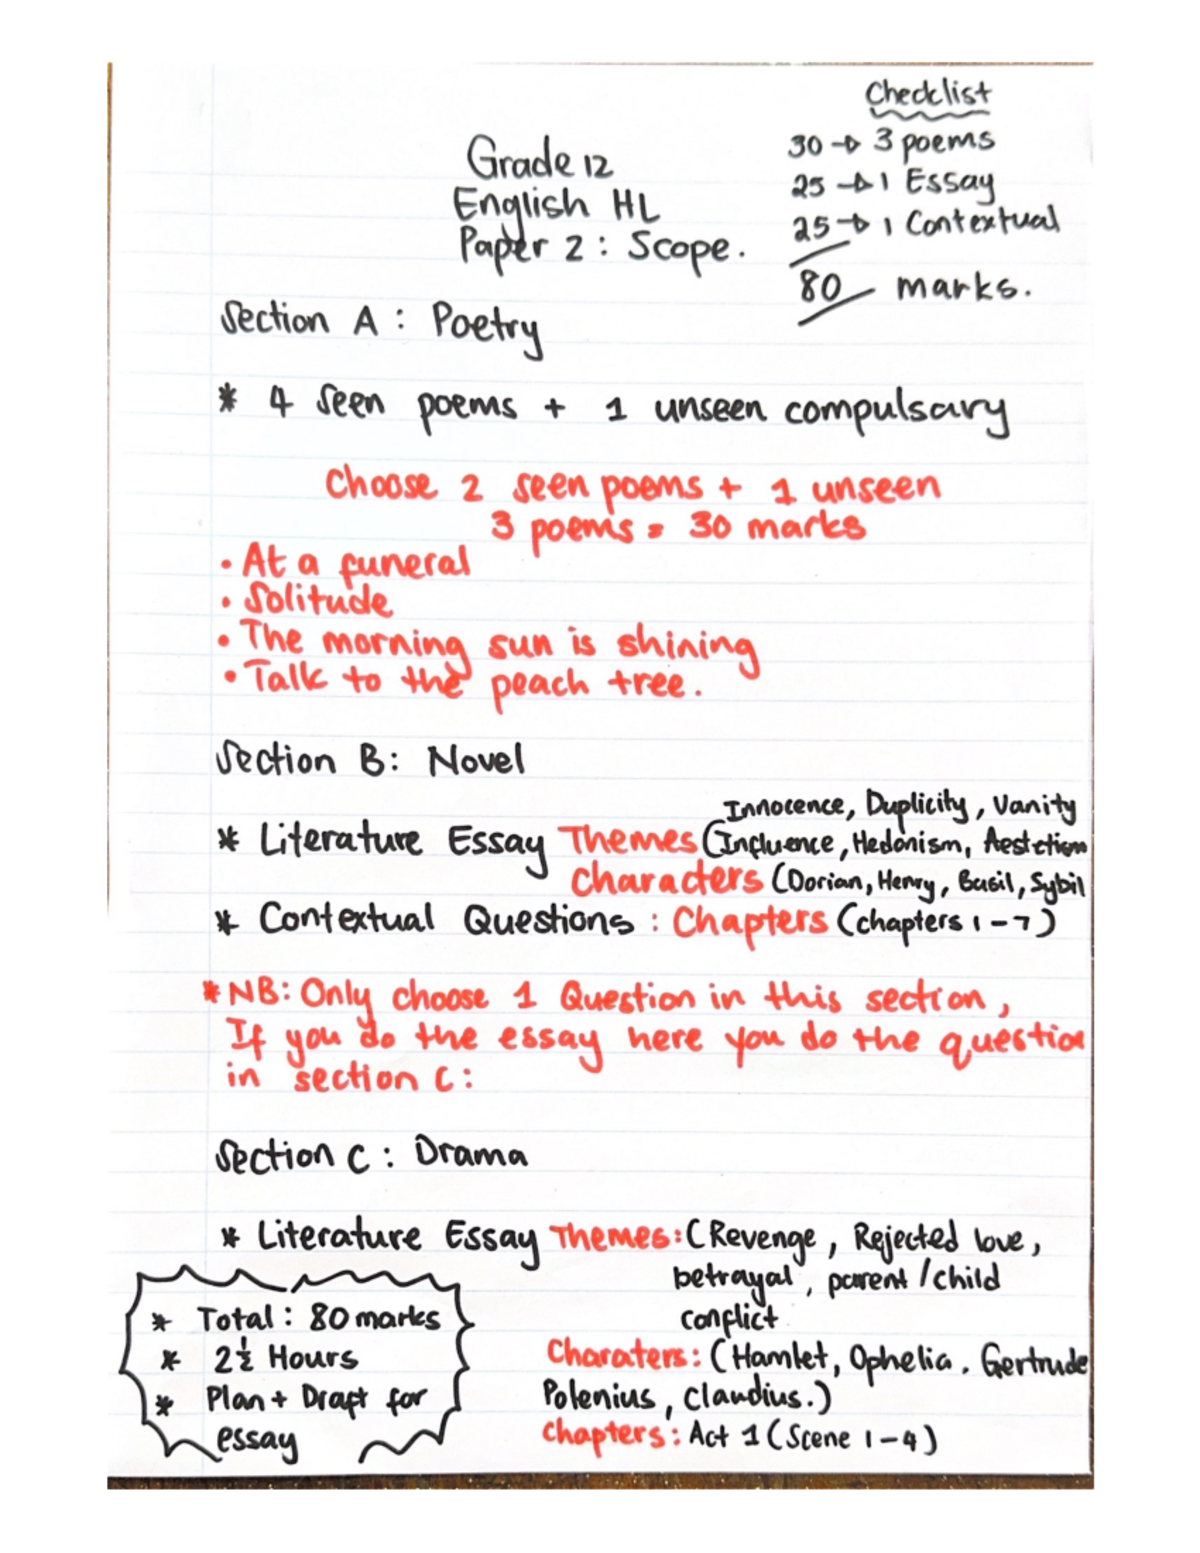 Checklist
30 → 3 poems
25 → 1 Essay
25 → 1 Contextual
80 marks.
Grade 12
English HL
Paper 2 : Scope.
Section A : Poetry
* 4 seen poems + 1 unseen compulsary
Choose 2 seen poems + 1 unseen
3 poems = 30 marks
• At a funeral
• Solitude
• The morning sun is shining
• Talk to the peach tree.
Section B: Novel
Innocence, Duplicity, Vanity
* Literature Essay Themes (Influence, Hedonism, Aestetism
Characters (Dorian, Henry, Basil, Sybil
* Contextual Questions : Chapters (chapters 1-7)
* NB: Only choose 1 Question in this section,
If you do the essay here you do the question
in section C:
Section C : Drama
* Literature Essay Themes: (Revenge, Rejected love,
betrayal, parent / child
conflict
Charaters: (Hamlet, Ophelia. Gertrude
Polenius, Claudius.)
Chapters: Act 1 (Scene 1-4)
* Total : 80 marks
* 2½ Hours
* Plan + Draft for
essay